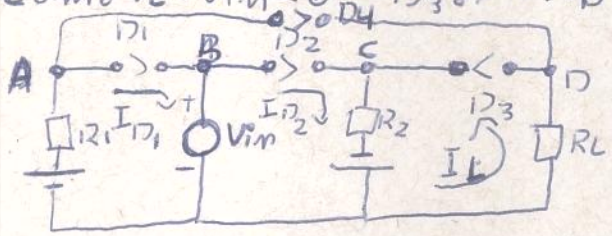 D4
D1 B D2 C
A D
D3
R1 ID1 + Vin ID2 R2 IL RL
-